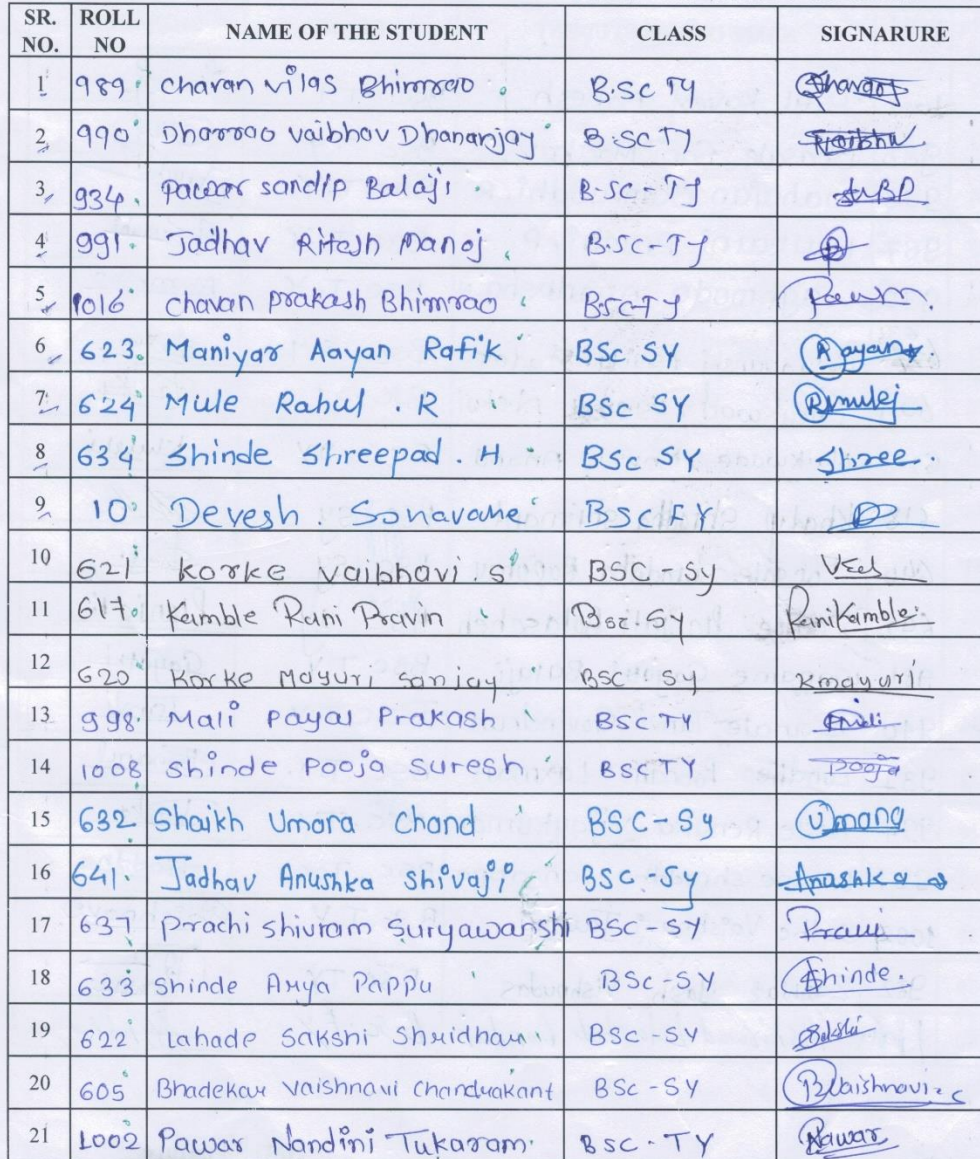 SR. NO. ROLL NO NAME OF THE STUDENT CLASS SIGNARURE
1 989. Chavan vilas Bhimrao. B.SC TY Chavan
2 990. Dharrao vaibhav Dhananjay B.SC TY Vaibhav
3 934. pawar sandip Balaji B.SC-TY SBP
4 991. Jadhav Ritesh Manoj. B.SC-TY
5 1016 Chavan prakash Bhimrao. BSCTY
6 623. Maniyar Aayan Rafik BSc SY Aayan
7 624 Mule Rahul . R BSc SY Rmule
8 634 Shinde Shreepad . H BSc SY Shree.
9 10. Devesh Sonavane BSc FY
10 621 Korke Vaibhavi . S BSC-SY
11 617. Kamble Rani Pravin BSC-SY RaniKamble.
12 620 Korke Mayuri Sanjay BSC-SY Kmayuri
13 998. Mali payal Prakash BSCTY Mali
14 1008 Shinde Pooja Suresh. BSCTY Pooja
15 632 Shaikh Umara Chand BSC-SY
16 641. Jadhav Anushka Shivaji BSC-SY Anushka
17 637 Prachi shivram Suryawanshi BSC-SY
18 633 Shinde Arya Pappu BSC-SY Shinde.
19 622 Lahade Sakshi Shridhar BSC-SY Sakshi
20 605 Bhadekar vaishnavi Chandrakant BSc-SY BVaishnavi.C
21 1002 Pawar Nandini Tukaram. BSC-TY Pawar